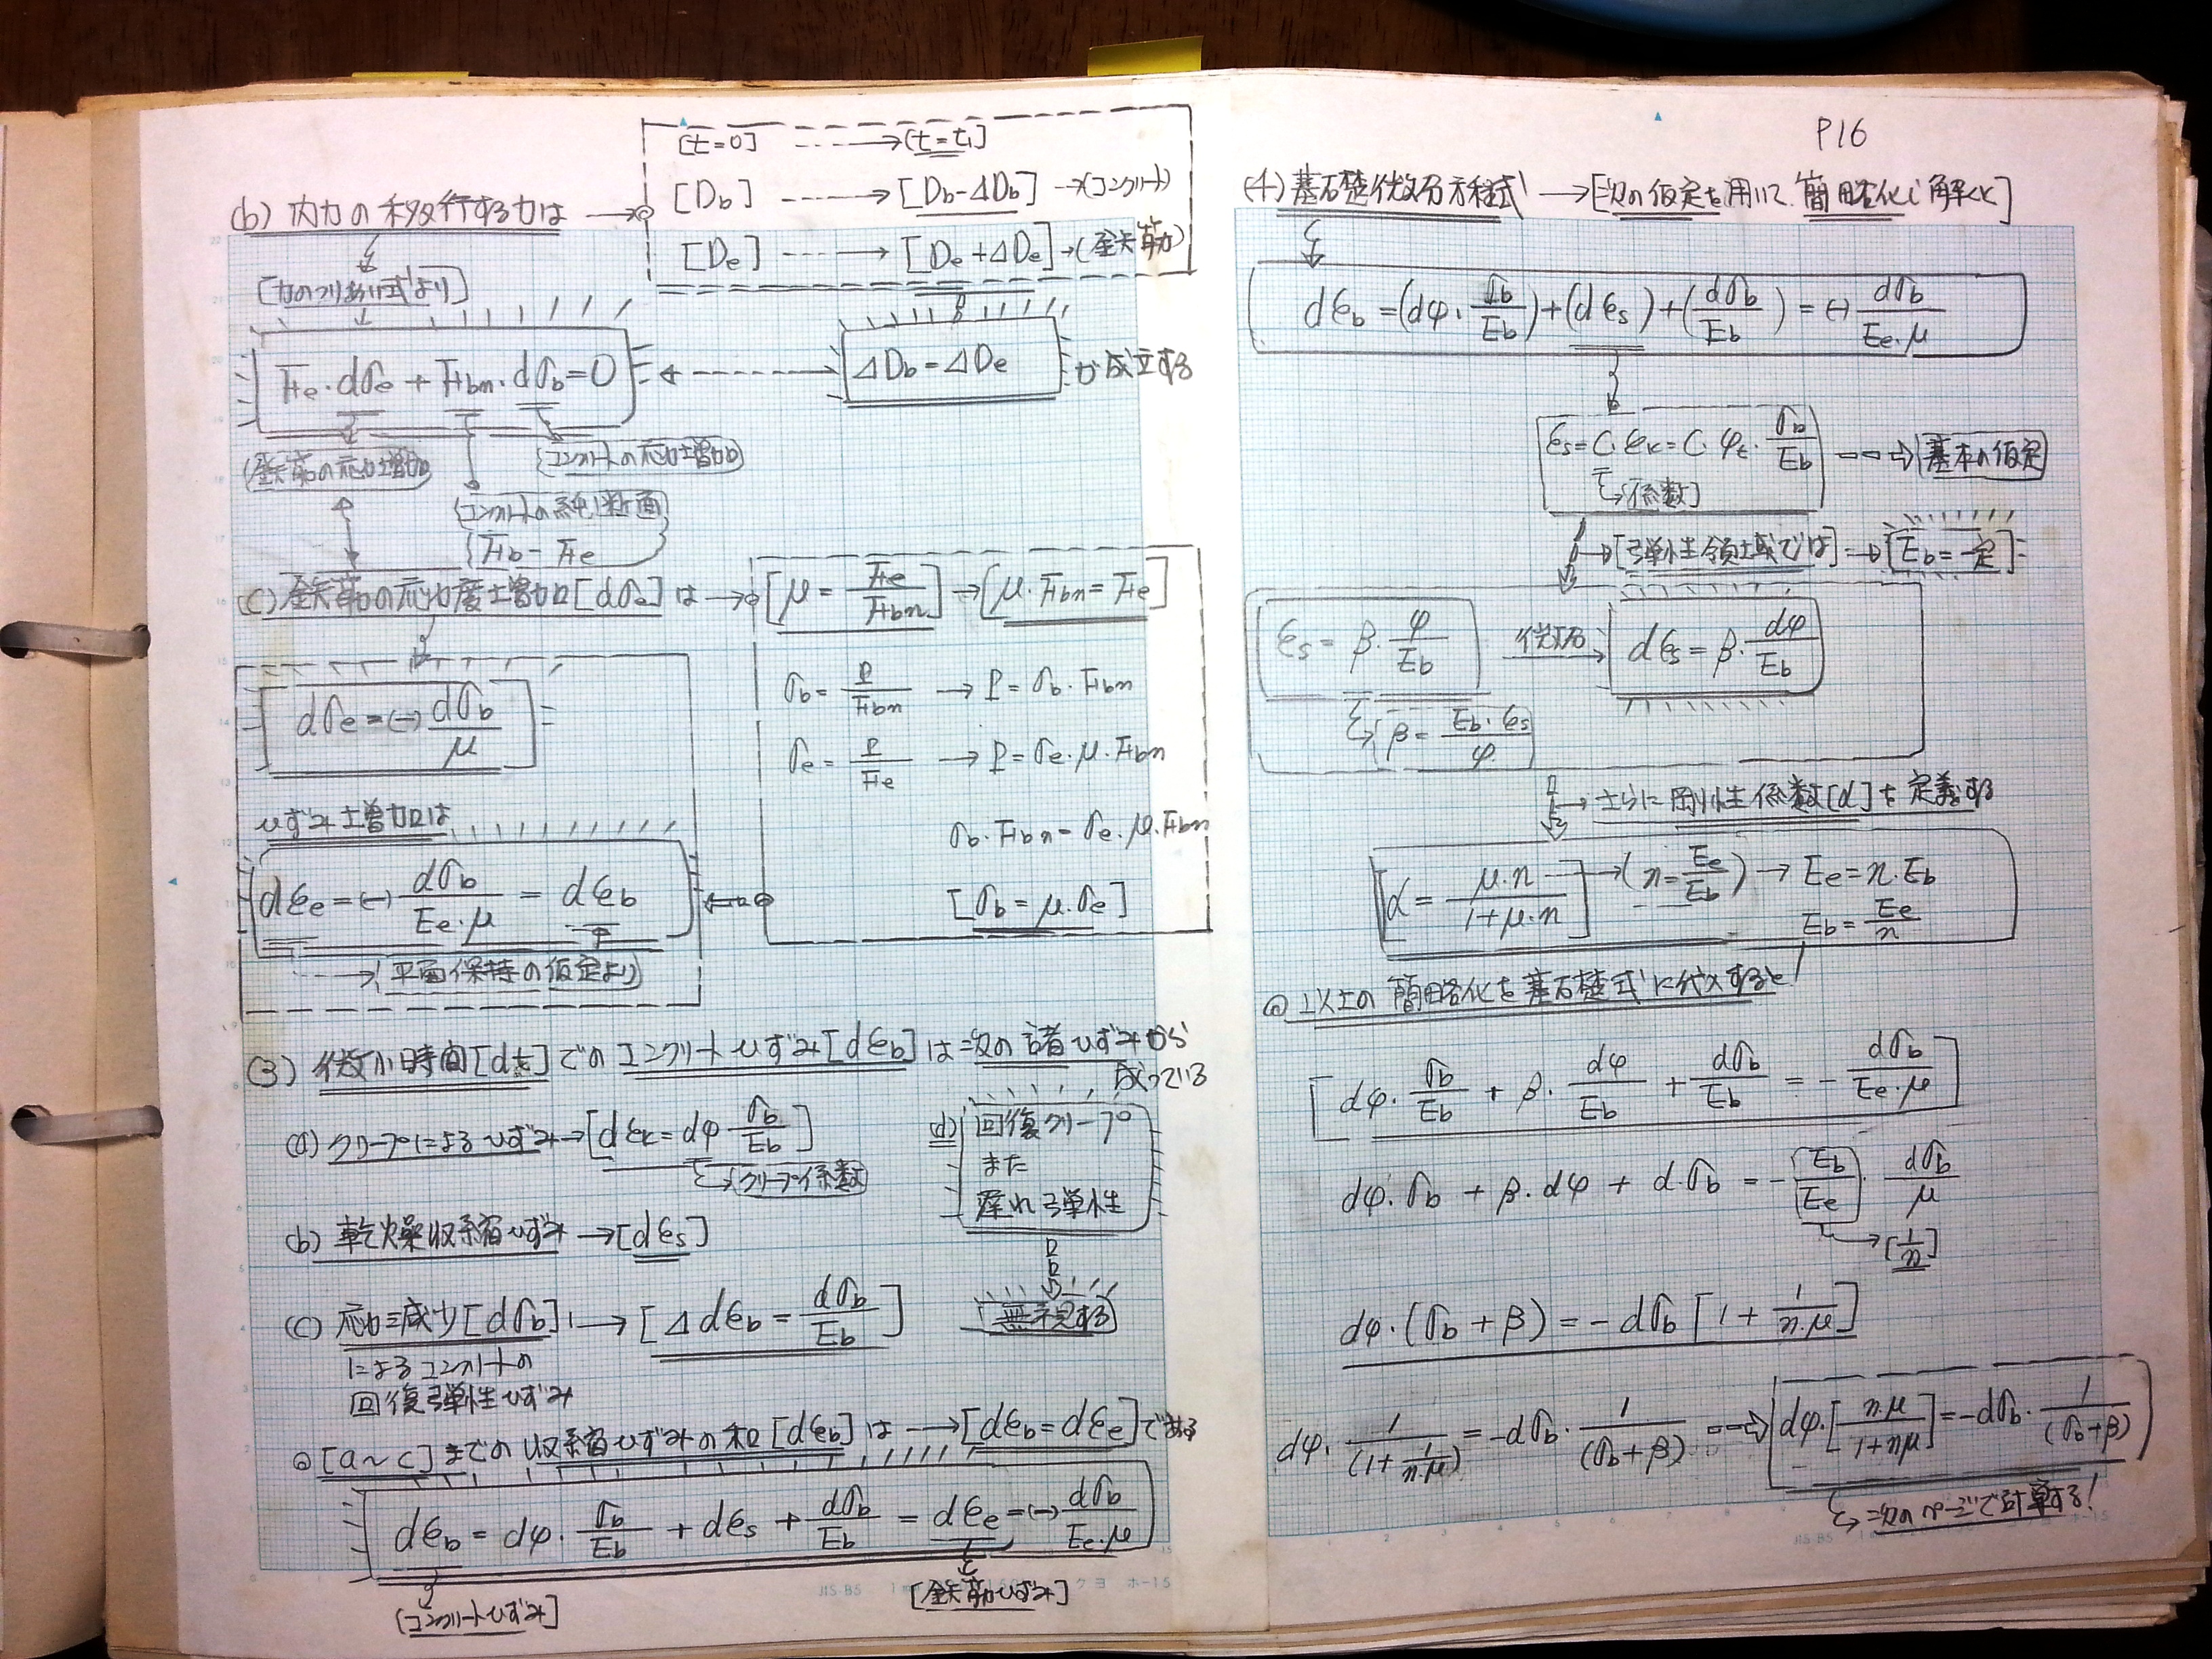 [t=0] ---→ [t=t₁]
(b) 内力の移行する力は → [Db] ---→ [Db-ΔDb] → (コンクリート)
[De] ---→ [De+ΔDe] → (鉄筋)
[力のつりあい式より]
Fe・dσe + Fbn・dσb = 0 ←--- ΔDb = ΔDe が成立する
(鉄筋の応力増加)
(コンクリートの応力増加)
(コンクリートの純断面)
Fb - Fe
(c) 鉄筋の応力度増加[dσe]は → [μ = Fe/Fbn] → [μ・Fbn = Fe]
dσe = (-) dσb/μ
σb = P/Fbn → P = σb・Fbn
σe = P/Fe → P = σe・μ・Fbn
σb・Fbn = σe・μ・Fbn
[σb = μ・σe]
ひずみ増加は
dεe = (-) dσb/(Ee・μ) = dεb
→ (平面保持の仮定より)
(3) 微小時間[dt]でのコンクリートひずみ[dεb]は次の諸ひずみから
成っている
(a) クリープによるひずみ → [dεk = dφ・σb/Eb]
(クリープ係数)
(b) 乾燥収縮ひずみ → [dεs]
(c) 応力減少[dσb] → [Δdεb = dσb/Eb]
によるコンクリートの
回復弾性ひずみ
(d) 回復クリープ
また
遅れ弾性
無視する
◎ [a~c]までの収縮ひずみの和[dεb]は → [dεb = dεe]である
dεb = dφ・σb/Eb + dεs + dσb/Eb = dεe = (-) dσb/(Ee・μ)
[コンクリートひずみ]
[鉄筋ひずみ]
P16
(4) 基礎微分方程式 → [次の仮定を用いて簡略化し解く]
dεb = (dφ・σb/Eb) + (dεs) + (dσb/Eb) = (-) dσb/(Ee・μ)
εs = C・εk = C・φt・σb/Eb --⇒ [基本の仮定]
[係数]
→ [弾性領域では] → [Eb = 一定]
εs = β・φ/Eb 微分→ dεs = β・dφ/Eb
β = Eb・εs/φ
→ さらに剛性係数[α]を定義する
α = μ・n/(1+μ・n) → (n = Ee/Eb) → Ee = n・Eb
Eb = Ee/n
◎ 以上の簡略化を基礎式に代入すると!
[dφ・σb/Eb + β・dφ/Eb + dσb/Eb = - dσb/(Ee・μ)]
dφ・σb + β・dφ + d・σb = - Eb/Ee・dσb/μ
→ [1/n]
dφ・(σb + β) = - dσb [1 + 1/(n・μ)]
dφ・1/(1 + 1/(n・μ)) = -dσb・1/(σb+β) --⇒ dφ・[n・μ/(1+nμ)] = -dσb・1/(σb+β)
→ 次のページで計算する!
JIS-B5 1 コクヨ ホ-15
JIS B5 ホ-15